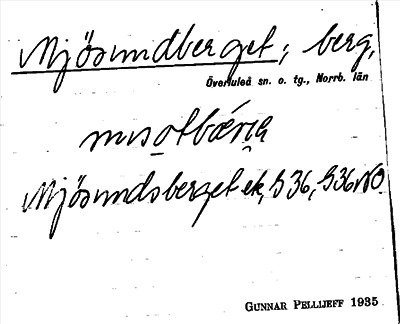 Mjösundberget; berg,
Överluleå sn. o. tg., Norrb. län
mɩsotbærɩa
Mjösundsberget ek, S36, S36NO
GUNNAR PELLIJEFF 1935